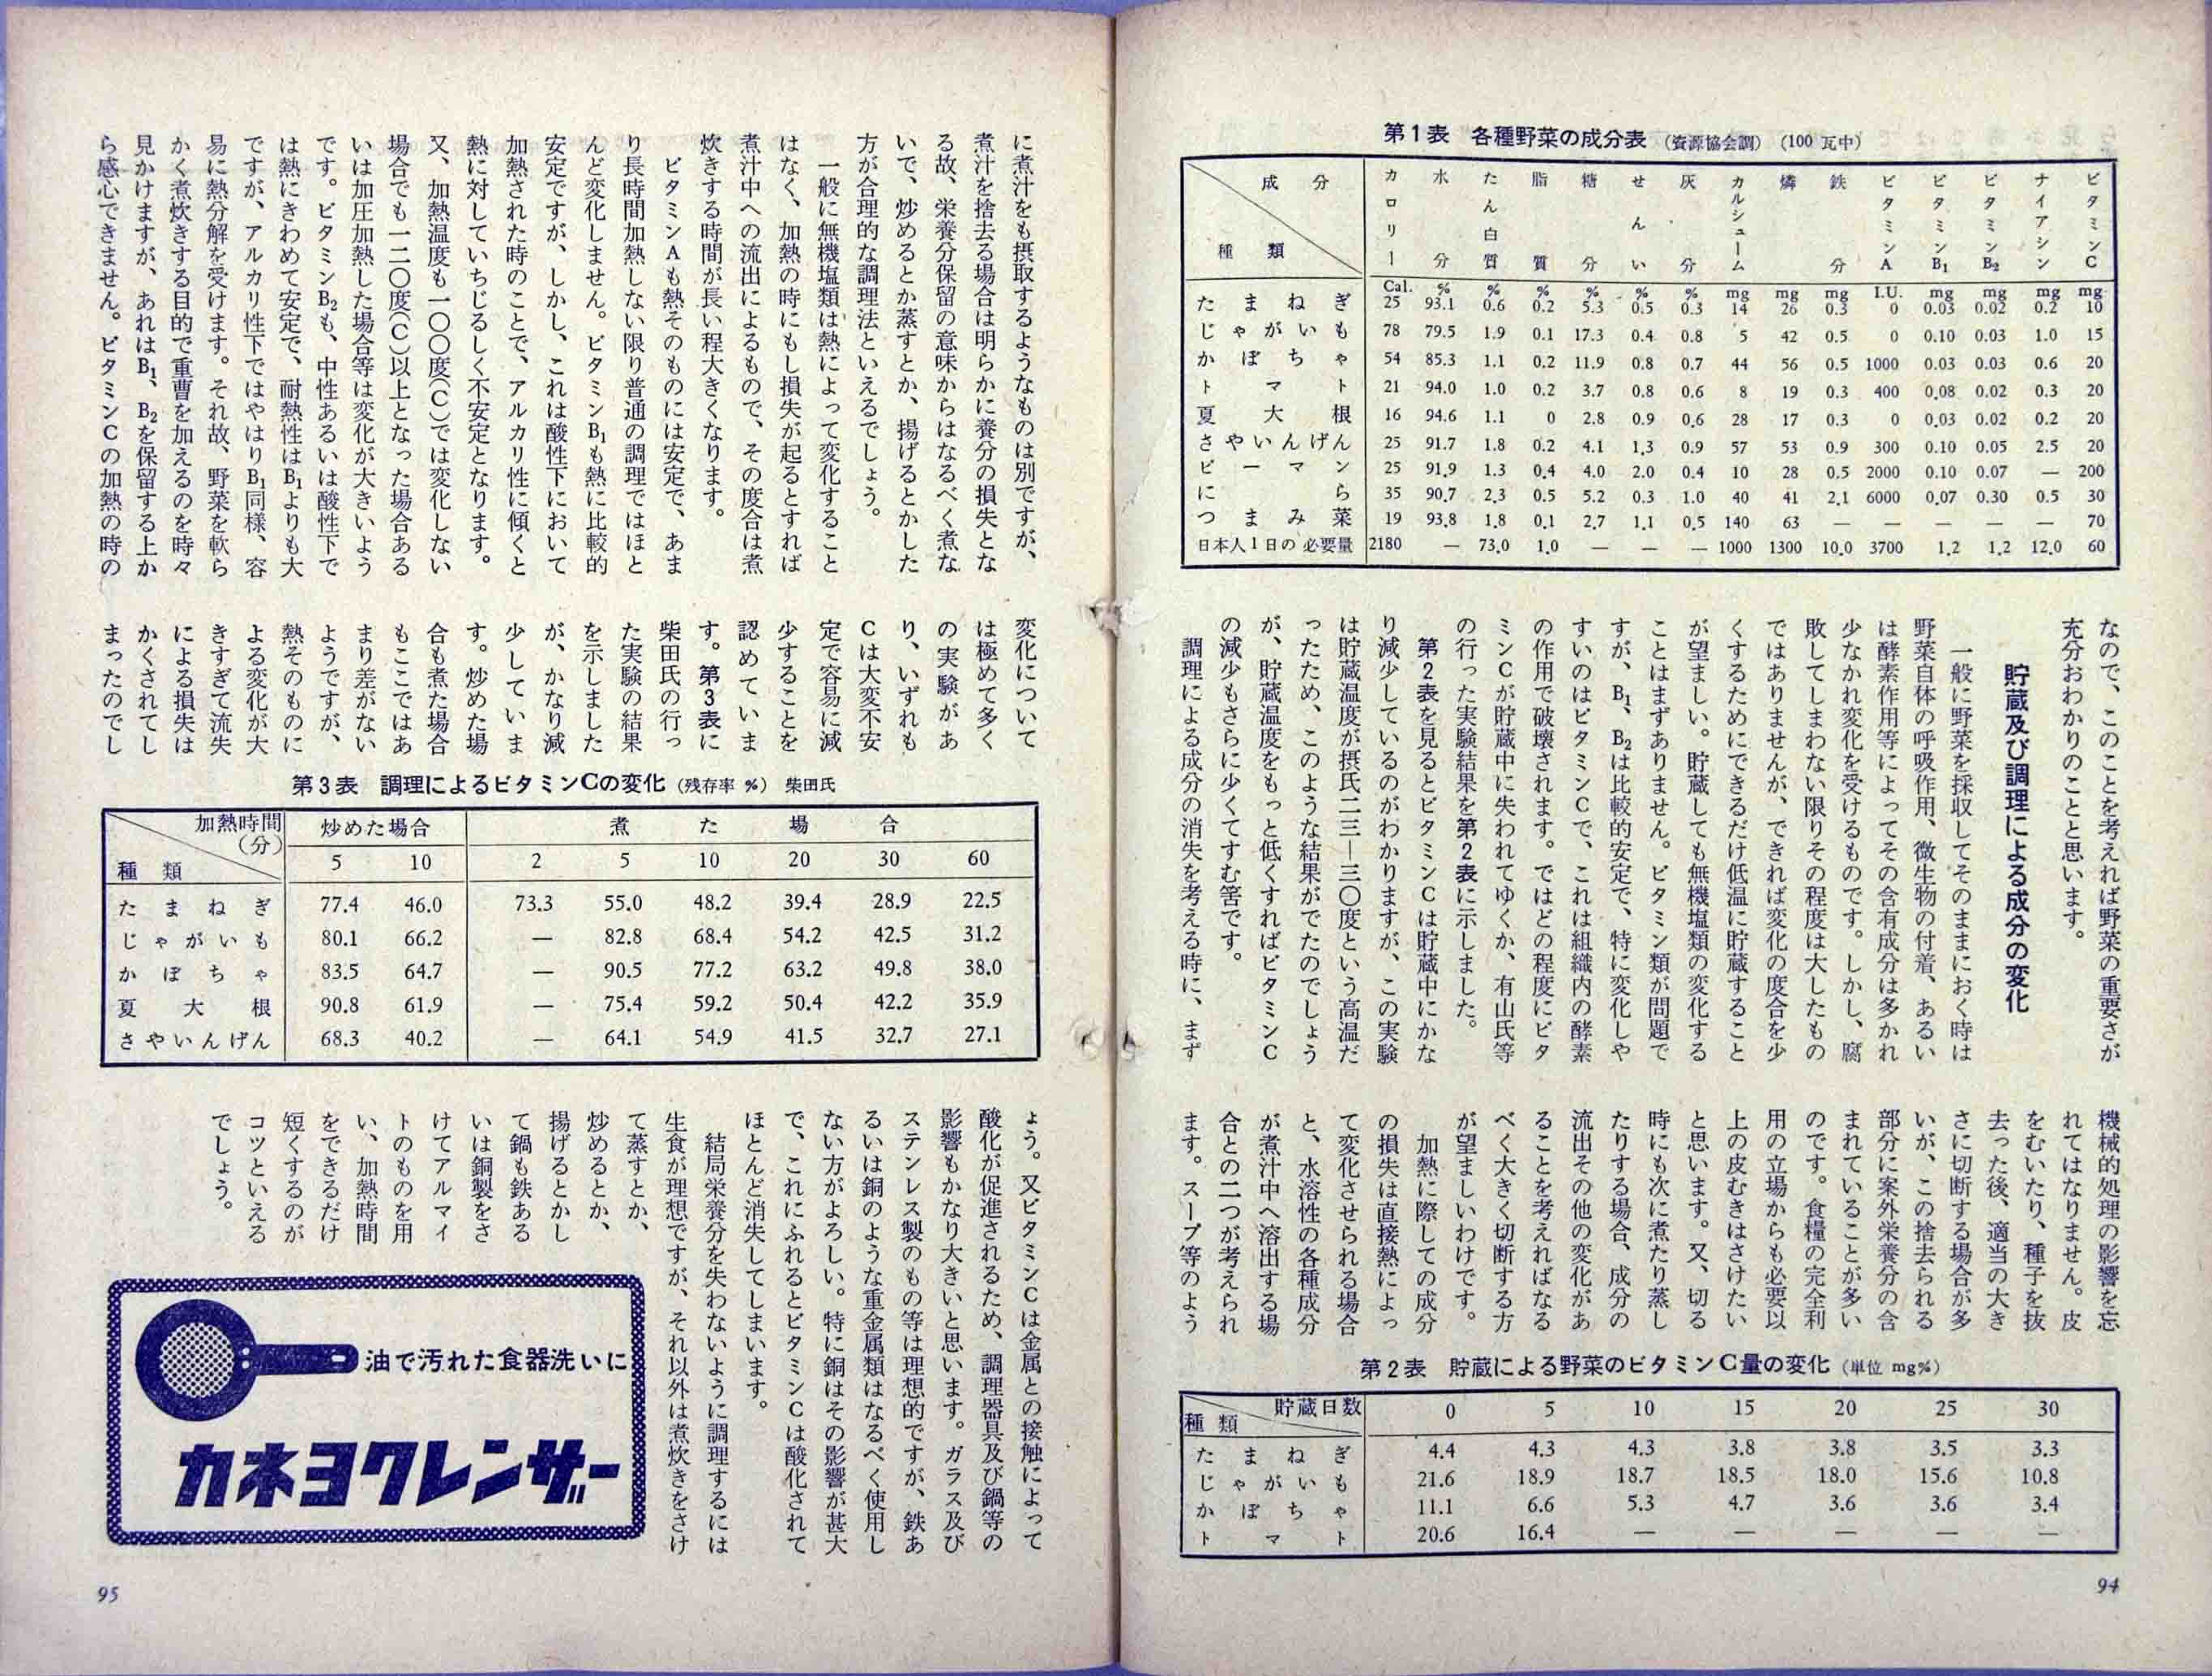 第1表 各種野菜の成分表 (資源協会調) (100 瓦中)
成分 種類 カロリー 水分 たん白質 脂質 糖分 せんい 灰分 カルシューム 燐 鉄分 ビタミンA ビタミンB₁ ビタミンB₂ ナイアシン ビタミンC
Cal. % % % % % % mg mg mg I.U. mg mg mg mg
たまねぎ 25 93.1 0.6 0.2 5.3 0.5 0.3 14 26 0.3 0 0.03 0.02 0.2 10
じゃがいも 78 79.5 1.9 0.1 17.3 0.4 0.8 5 42 0.5 0 0.10 0.03 1.0 15
かぼちゃ 54 85.3 1.1 0.2 11.9 0.8 0.7 44 56 0.5 1000 0.03 0.03 0.6 20
トマト 21 94.0 1.0 0.2 3.7 0.8 0.6 8 19 0.3 400 0.08 0.02 0.3 20
夏大根 16 94.6 1.1 0 2.8 0.9 0.6 28 17 0.3 0 0.03 0.02 0.2 20
さやいんげん 25 91.7 1.8 0.2 4.1 1.3 0.9 57 53 0.9 300 0.10 0.05 2.5 20
ピーマン 25 91.9 1.3 0.4 4.0 2.0 0.4 10 28 0.5 2000 0.10 0.07 — 200
にら 35 90.7 2.3 0.5 5.2 0.3 1.0 40 41 2.1 6000 0.07 0.30 0.5 30
つまみ菜 19 93.8 1.8 0.1 2.7 1.1 0.5 140 63 — — — — — 70
日本人1日の必要量 2180 — 73.0 1.0 — — — 1000 1300 10.0 3700 1.2 1.2 12.0 60
なので、このことを考えれば野菜の重要さが
充分おわかりのことと思います。
貯蔵及び調理による成分の変化
一般に野菜を採収してそのままにおく時は
野菜自体の呼吸作用、微生物の付着、あるい
は酵素作用等によってその含有成分は多かれ
少なかれ変化を受けるものです。しかし、腐
敗してしまわない限りその程度は大したもの
ではありませんが、できれば変化の度合を少
くするためにできるだけ低温に貯蔵すること
が望ましい。貯蔵しても無機塩類の変化する
ことはまずありません。ビタミン類が問題で
すが、B₁、B₂は比較的安定で、特に変化しや
すいのはビタミンCで、これは組織内の酵素
の作用で破壊されます。ではどの程度にビタ
ミンCが貯蔵中に失われてゆくか、有山氏等
の行った実験結果を第2表に示しました。
第2表を見るとビタミンCは貯蔵中にかな
り減少しているのがわかりますが、この実験
は貯蔵温度が摂氏二三―三〇度という高温だ
ったため、このような結果がでたのでしょう
が、貯蔵温度をもっと低くすればビタミンC
の減少もさらに少くてすむ筈です。
調理による成分の消失を考える時に、まず
機械的処理の影響を忘
れてはなりません。皮
をむいたり、種子を抜
去った後、適当の大き
さに切断する場合が多
いが、この捨去られる
部分に案外栄養分の含
まれていることが多い
のです。食糧の完全利
用の立場からも必要以
上の皮むきはさけたい
と思います。又、切る
時にも次に煮たり蒸し
たりする場合、成分の
流出その他の変化があ
ることを考えればなる
べく大きく切断する方
が望ましいわけです。
加熱に際しての成分
の損失は直接熱によっ
て変化させられる場合
と、水溶性の各種成分
が煮汁中へ溶出する場
合との二つが考えられ
ます。スープ等のよう
第2表 貯蔵による野菜のビタミンC量の変化 (単位 mg%)
種類 貯蔵日数 0 5 10 15 20 25 30
たまねぎ 4.4 4.3 4.3 3.8 3.8 3.5 3.3
じゃがいも 21.6 18.9 18.7 18.5 18.0 15.6 10.8
かぼちゃ 11.1 6.6 5.3 4.7 3.6 3.6 3.4
トマト 20.6 16.4 — — — — —
94
に煮汁をも摂取するようなものは別ですが、
煮汁を捨去る場合は明らかに養分の損失とな
る故、栄養分保留の意味からはなるべく煮な
いで、炒めるとか蒸すとか、揚げるとかした
方が合理的な調理法といえるでしょう。
一般に無機塩類は熱によって変化すること
はなく、加熱の時にもし損失が起るとすれば
煮汁中への流出によるもので、その度合は煮
炊きする時間が長い程大きくなります。
ビタミンAも熱そのものには安定で、あま
り長時間加熱しない限り普通の調理ではほと
んど変化しません。ビタミンB₁も熱に比較的
安定ですが、しかし、これは酸性下において
加熱された時のことで、アルカリ性に傾くと
熱に対していちじるしく不安定となります。
又、加熱温度も一〇〇度(C)では変化しない
場合でも一二〇度(C)以上となった場合ある
いは加圧加熱した場合等は変化が大きいよう
です。ビタミンB₂も、中性あるいは酸性下で
は熱にきわめて安定で、耐熱性はB₁よりも大
ですが、アルカリ性下ではやはりB₁同様、容
易に熱分解を受けます。それ故、野菜を軟ら
かく煮炊きする目的で重曹を加えるのを時々
見かけますが、あれはB₁、B₂を保留する上か
ら感心できません。ビタミンCの加熱の時の
変化について
は極めて多く
の実験があ
り、いずれも
Cは大変不安
定で容易に減
少することを
認めていま
す。第3表に
柴田氏の行っ
た実験の結果
を示しました
が、かなり減
少していま
す。炒めた場
合も煮た場合
もここではあ
まり差がない
ようですが、
熱そのものに
よる変化が大
きすぎて流失
による損失は
かくされてし
まったのでし
第3表 調理によるビタミンCの変化 (残存率 %) 柴田氏
加熱時間(分) 種類 炒めた場合 煮た場合
5 10 2 5 10 20 30 60
たまねぎ 77.4 46.0 73.3 55.0 48.2 39.4 28.9 22.5
じゃがいも 80.1 66.2 — 82.8 68.4 54.2 42.5 31.2
かぼちゃ 83.5 64.7 — 90.5 77.2 63.2 49.8 38.0
夏大根 90.8 61.9 — 75.4 59.2 50.4 42.2 35.9
さやいんげん 68.3 40.2 — 64.1 54.9 41.5 32.7 27.1
ょう。又ビタミンCは金属との接触によって
酸化が促進されるため、調理器具及び鍋等の
影響もかなり大きいと思います。ガラス及び
ステンレス製のもの等は理想的ですが、鉄あ
るいは銅のような重金属類はなるべく使用し
ない方がよろしい。特に銅はその影響が甚大
で、これにふれるとビタミンCは酸化されて
ほとんど消失してしまいます。
結局栄養分を失わないように調理するには
生食が理想ですが、それ以外は煮炊きをさけ
て蒸すとか、
炒めるとか、
揚げるとかし
て鍋も鉄ある
いは銅製をさ
けてアルマイ
トのものを用
い、加熱時間
をできるだけ
短くするのが
コツといえる
でしょう。
油で汚れた食器洗いに
カネヨクレンザー
95